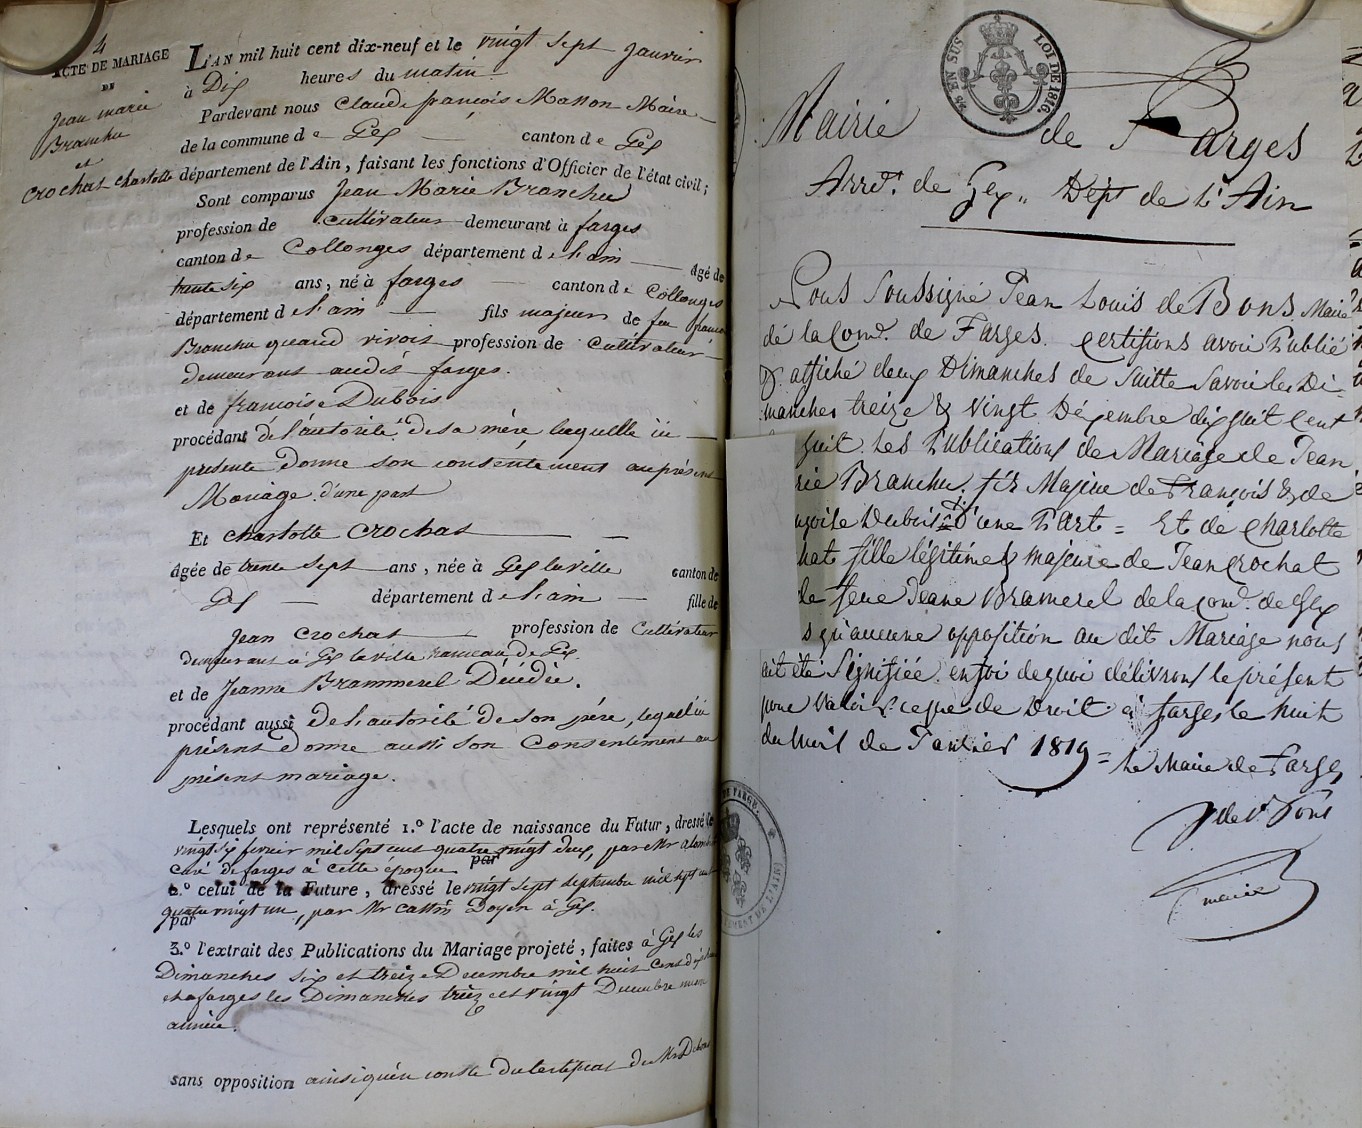 4
ACTE DE MARIAGE
DE
Jean marie
Branchu
et
Crochat Charlotte
L'AN mil huit cent dix-neuf et le vingt sept janvier
à Dix heures du matin.
Pardevant nous Claude françois Masson Maire
de la commune de Gex canton de Gex
département de l'Ain, faisant les fonctions d'Officier de l'état civil;
Sont comparus Jean Marie Branchu
profession de cultivateur demeurant à farges
canton de Collonges département de l'ain âgé de
trente six ans, né à farges canton de Collonges
département de l'ain fils majeur de feu
Branchu quand vivoit profession de Cultivateur
demeurant audit farges.
et de françoise Dubois
procédant de l'autorité de sa mère laquelle ici
présente donne son consentement au présent
Mariage d'une part
Et charlotte Crochat
âgée de trente sept ans, née à Gex la ville canton de
Gex département de l'ain fille de
Jean Crochat profession de Cultivateur
demeurant à Gex la ville hameau de Gex.
et de Jeanne Brammerel Décédée.
procédant aussi de l'autorité de son père, lequel ici
présent donne aussi son Consentement au
présent mariage.
Lesquels ont représenté 1.º l'acte de naissance du Futur, dressé le
vingt six fevrier mil sept cent quatre vingt deux, par Mr
curé de farges à cette époque par
2.º celui de la Future, dressé le vingt sept septembre mil sept cent
quatre vingt un, par Mr Cassin Doyen à Gex.
par
3.º l'extrait des Publications du Mariage projeté, faites à Gex les
Dimanches six et treize Decembre mil huit cent dix huit
et à farges les Dimanches treize et vingt Decembre meme
année.
sans opposition ainsi qu'en conste du Certificat de Mr Debons
EIN SUS
LOI DE 1816.
Mairie de Farges
Arrd.t de Gex " Dépt de L'Ain
Nous Soussigné Jean Louis de Bons Maire
de la Com.e de Farges. Certifions avoir Publié
& affiché deux Dimanches de Suitte Savoir les Di-
manches treize & Vingt Décembre dix huit Cent
huit Les Publications de Mariage de Jean
rie Branchu, fils Majeur de François & de
nçoise Dubois d'une Part = Et de Charlotte
hat fille légitime & majeure de Jean Crochat
de feue Jeane Bramerel de la Com.e de Gex
s qu'aucune opposition au dit Mariage nous
ait été Signifiée. en foi de quoi délivrons le présent
pour Valoir ce que de Droit à farges le huit
du Mois de Janvier 1819 = Le Maire de Farges
J de Bons
maire
DE FARGE.
DEPARTEMENT DE L'AIN